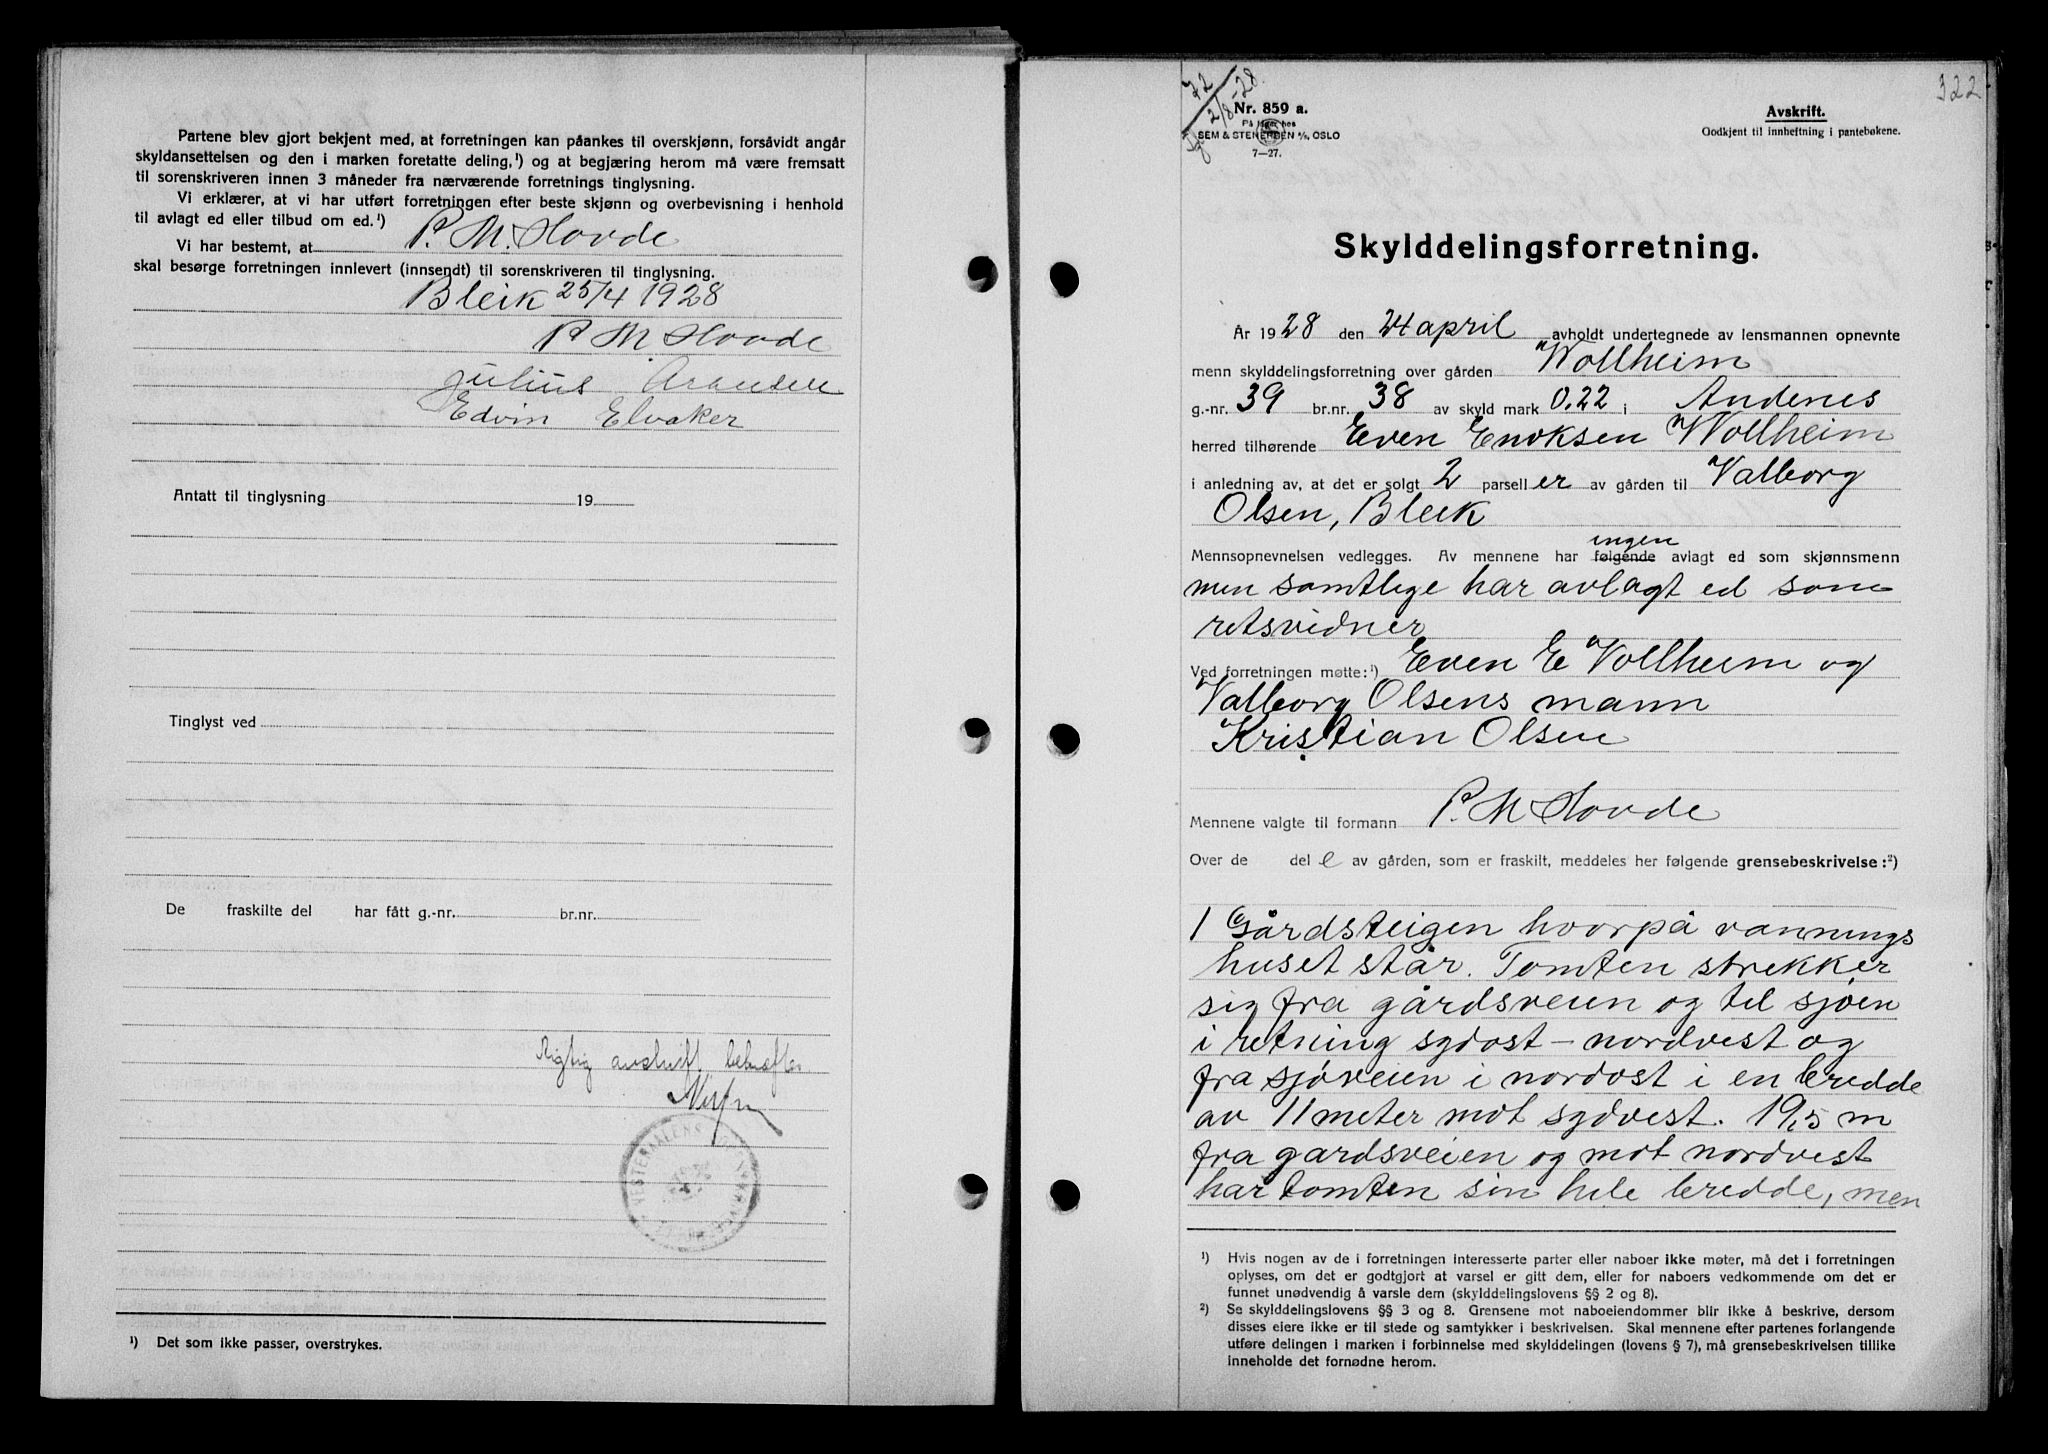 Partene blev gjort bekjent med, at forretningen kan påankes til overskjønn, forsåvidt angår
skyldansettelsen og den i marken foretatte deling,¹) og at begjæring herom må være fremsatt
til sorenskriveren innen 3 måneder fra nærværende forretnings tinglysning.
Vi erklærer, at vi har utført forretningen efter beste skjønn og overbevisning i henhold
til avlagt ed eller tilbud om ed.¹)
Vi har bestemt, at P. M. Hovde
skal besørge forretningen innlevert (innsendt) til sorenskriveren til tinglysning.
Bleik 25/4 1928
P M Hovde
Julius Arentsen
Edvin Elvaker
Antatt til tinglysning 19
Tinglyst ved
De fraskilte del har fått g.-nr. br.nr.
Rigtig avskrift bekræftes
¹) Det som ikke passer, overstrykes.
322
72
2/8-28.
Nr. 859 a.
På lager hos
SEM & STENERSEN A/S, OSLO
7—27.
Avskrift.
Godkjent til innheftning i pantebøkene.
Skylddelingsforretning.
År 1928 den 24 april avholdt undertegnede av lensmannen opnevnte
menn skylddelingsforretning over gården Wollheim
g.-nr. 39 br.nr. 38 av skyld mark 0.22 i Andenes
herred tilhørende Even Enoksen Wollheim
i anledning av, at det er solgt 2 parseller av gården til Valborg
Olsen, Bleik
ingen
Mennsopnevnelsen vedlegges. Av mennene har følgende avlagt ed som skjønnsmenn
men samtlige har avlagt ed som
retsvidner
Ved forretningen møtte:¹) Even E Vollheim og
Valborg Olsens mann
Kristian Olsen
Mennene valgte til formann P. M Hovde
Over de del e av gården, som er fraskilt, meddeles her følgende grensebeskrivelse:²)
1 Gårdsteigen hvorpå vannings
huset står. Tomten strekker
sig fra gårdsveien og til sjøen
i retning sydost – nordvest og
fra sjøveien i nordost i en bredde
av 11 meter mot sydvest. 19,5 m
fra gardsveien og mot nordvest
har tomten sin hele bredde, men
¹) Hvis nogen av de i forretningen interesserte parter eller naboer ikke møter, må det i forretningen
oplyses, om det er godtgjort at varsel er gitt dem, eller for naboers vedkommende om det er
funnet unødvendig å varsle dem (skylddelingslovens §§ 2 og 8).
²) Se skylddelingslovens §§ 3 og 8. Grensene mot naboeiendommer blir ikke å beskrive, dersom
disses eiere ikke er til stede og samtykker i beskrivelsen. Skal mennene efter partenes forlangende
utføre delingen i marken i forbinnelse med skylddelingen (lovens § 7), må grensebeskrivelsen tillike
inneholde det fornødne herom.